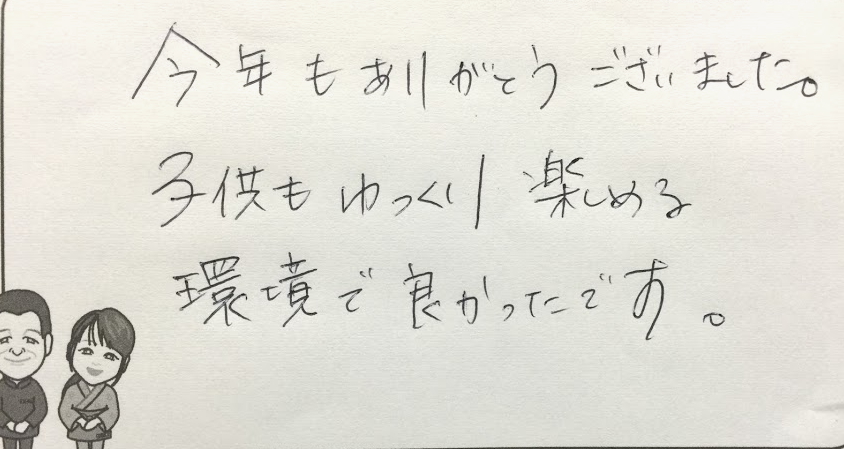 今年もありがとうございました。
子供もゆっくり楽しめる
環境で良かったです。